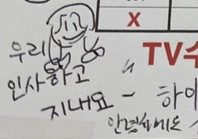 X
우리
TV수
인사하고
" 하이
지내요 -
안녕하세요